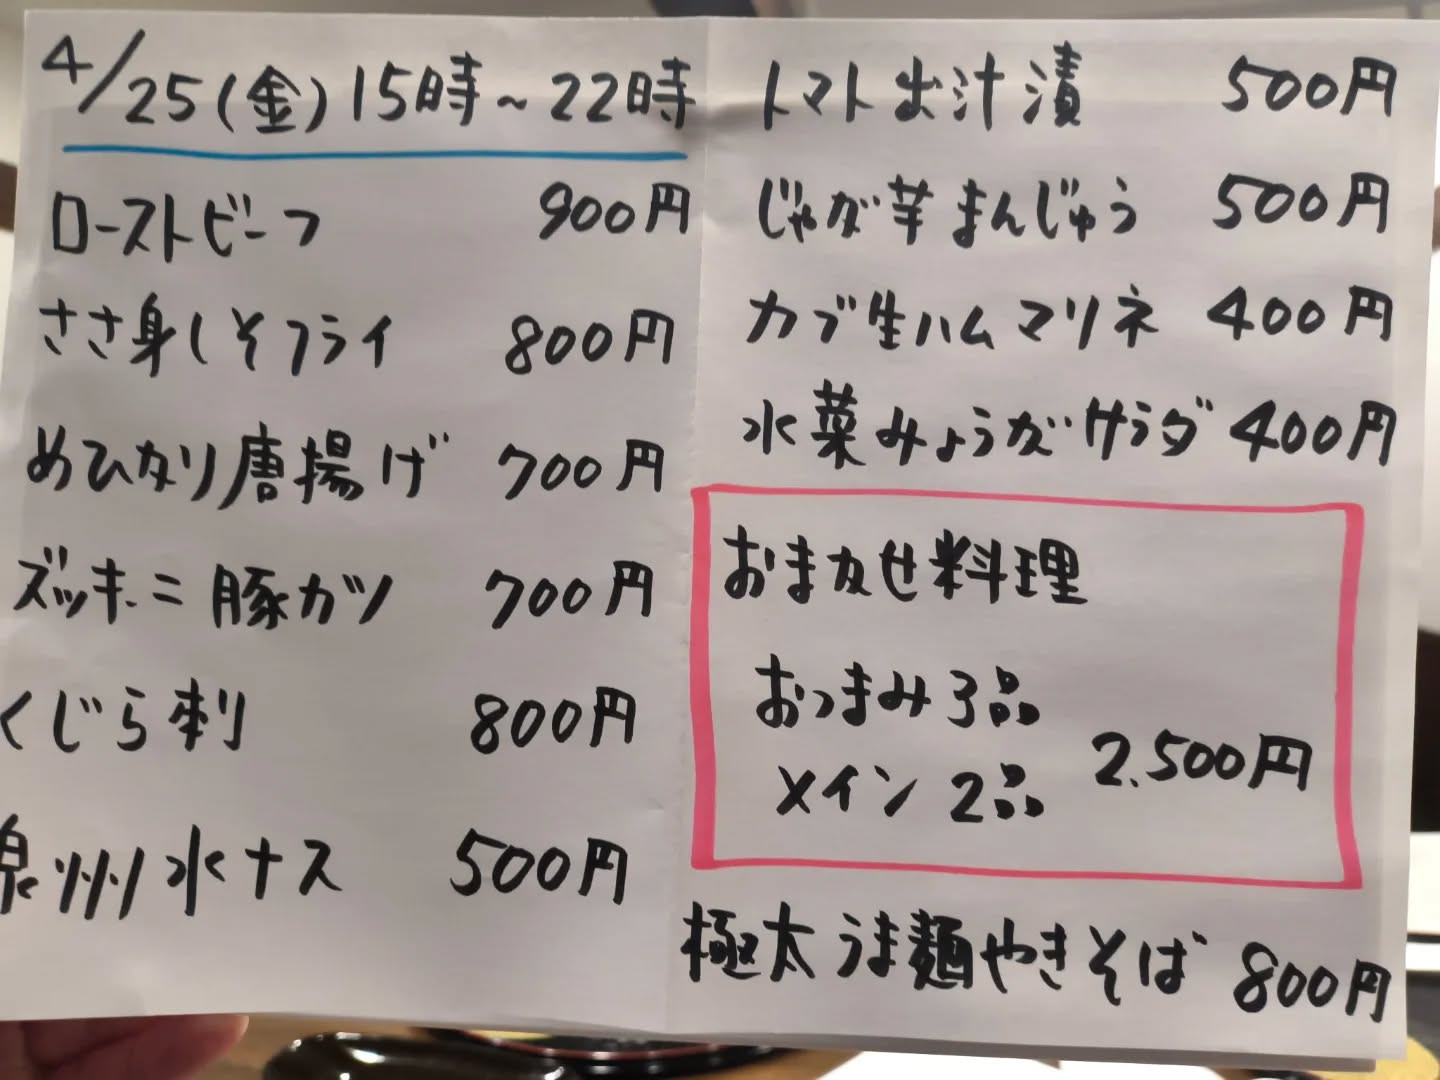 4/25(金)15時~22時
ローストビーフ 900円
ささ身しそフライ 800円
めひかり唐揚げ 700円
ズッキーニ豚カツ 700円
くじら刺 800円
泉州水ナス 500円
トマト出汁漬 500円
じゃが芋まんじゅう 500円
カブ生ハムマリネ 400円
水菜みょうがサラダ 400円
おまかせ料理
おつまみ3品
メイン2品 2.500円
極太うま麺やきそば 800円